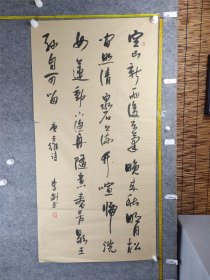 空山新雨後天氣晚來秋明月松
間照清泉石上流竹喧歸浣
女蓮動下漁舟隨意春芳歇王
孫自可留
唐王維詩